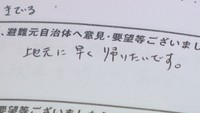 きでる
、避難元自治体へ意見・要望等ございまし
地元に早く帰りたいです。
の他ございましたら